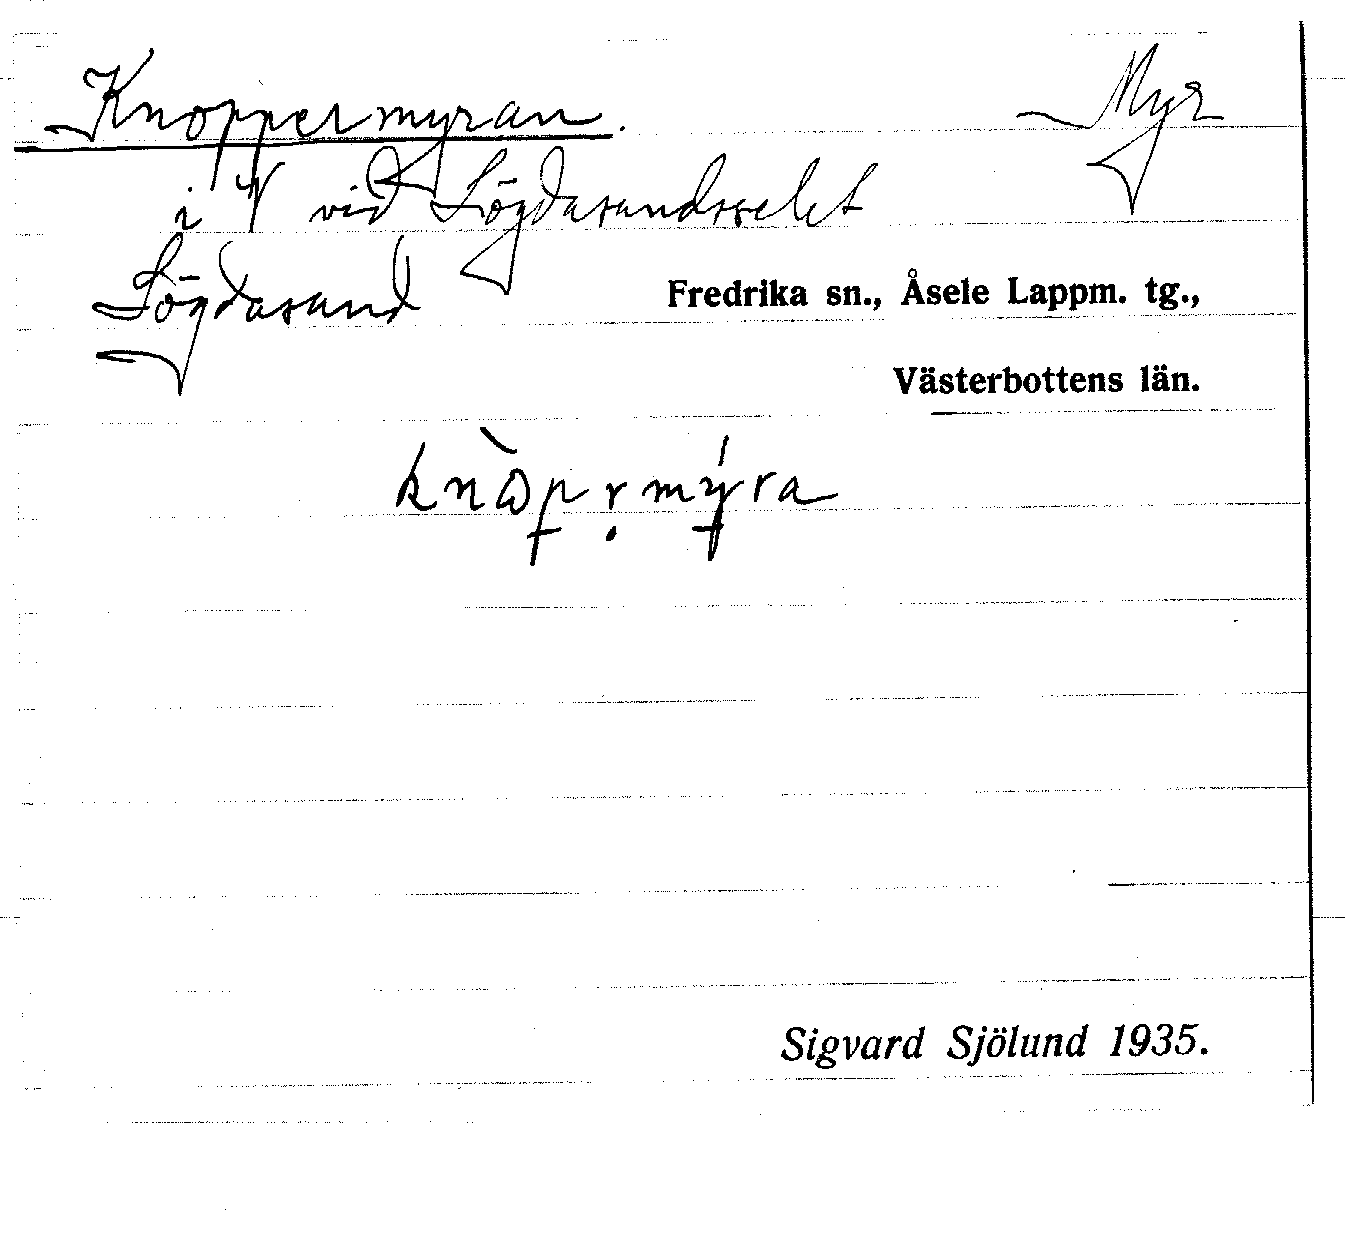 Knoppermyran. Myr
i V vid Lögdasundsselet
Lögdasund Fredrika sn., Åsele Lappm. tg.,
Västerbottens län.
knòpr̥mýra
Sigvard Sjölund 1935.